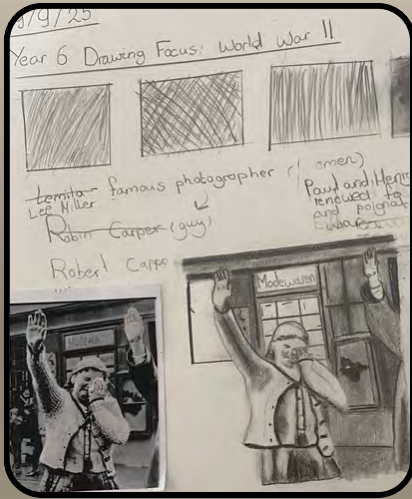 9/9/25
Year 6 Drawing Focus: World War II
Lemita famous photographer (women)
Lee Miller
Robin Carper (guy)
Robert Cappa
Paul and Henri
renowed to
and poignat
war
Modewaren
Modewaren